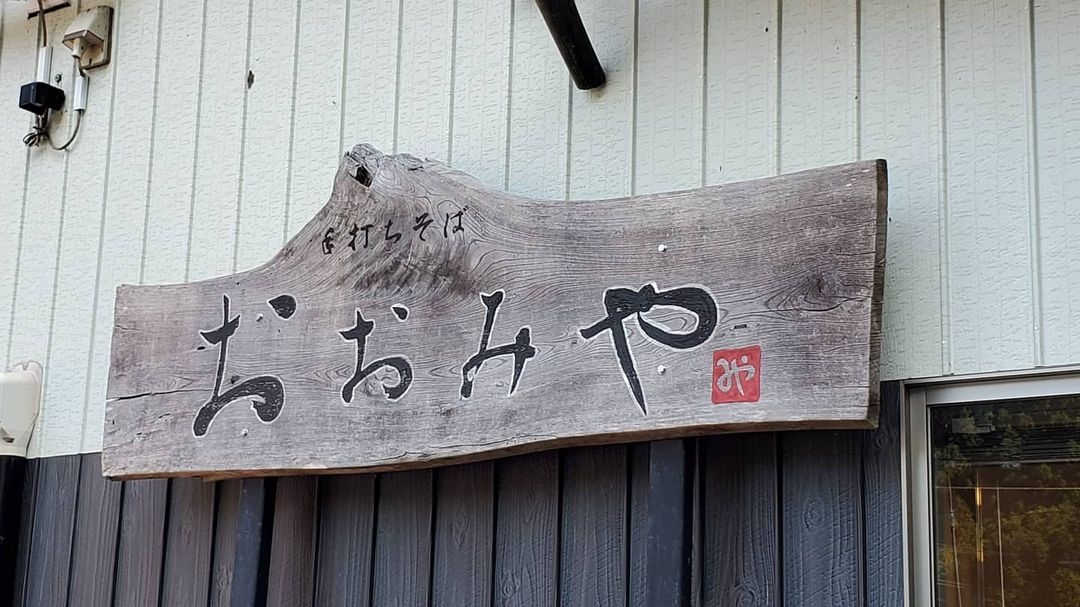 手打ちそば
おおみや
みや